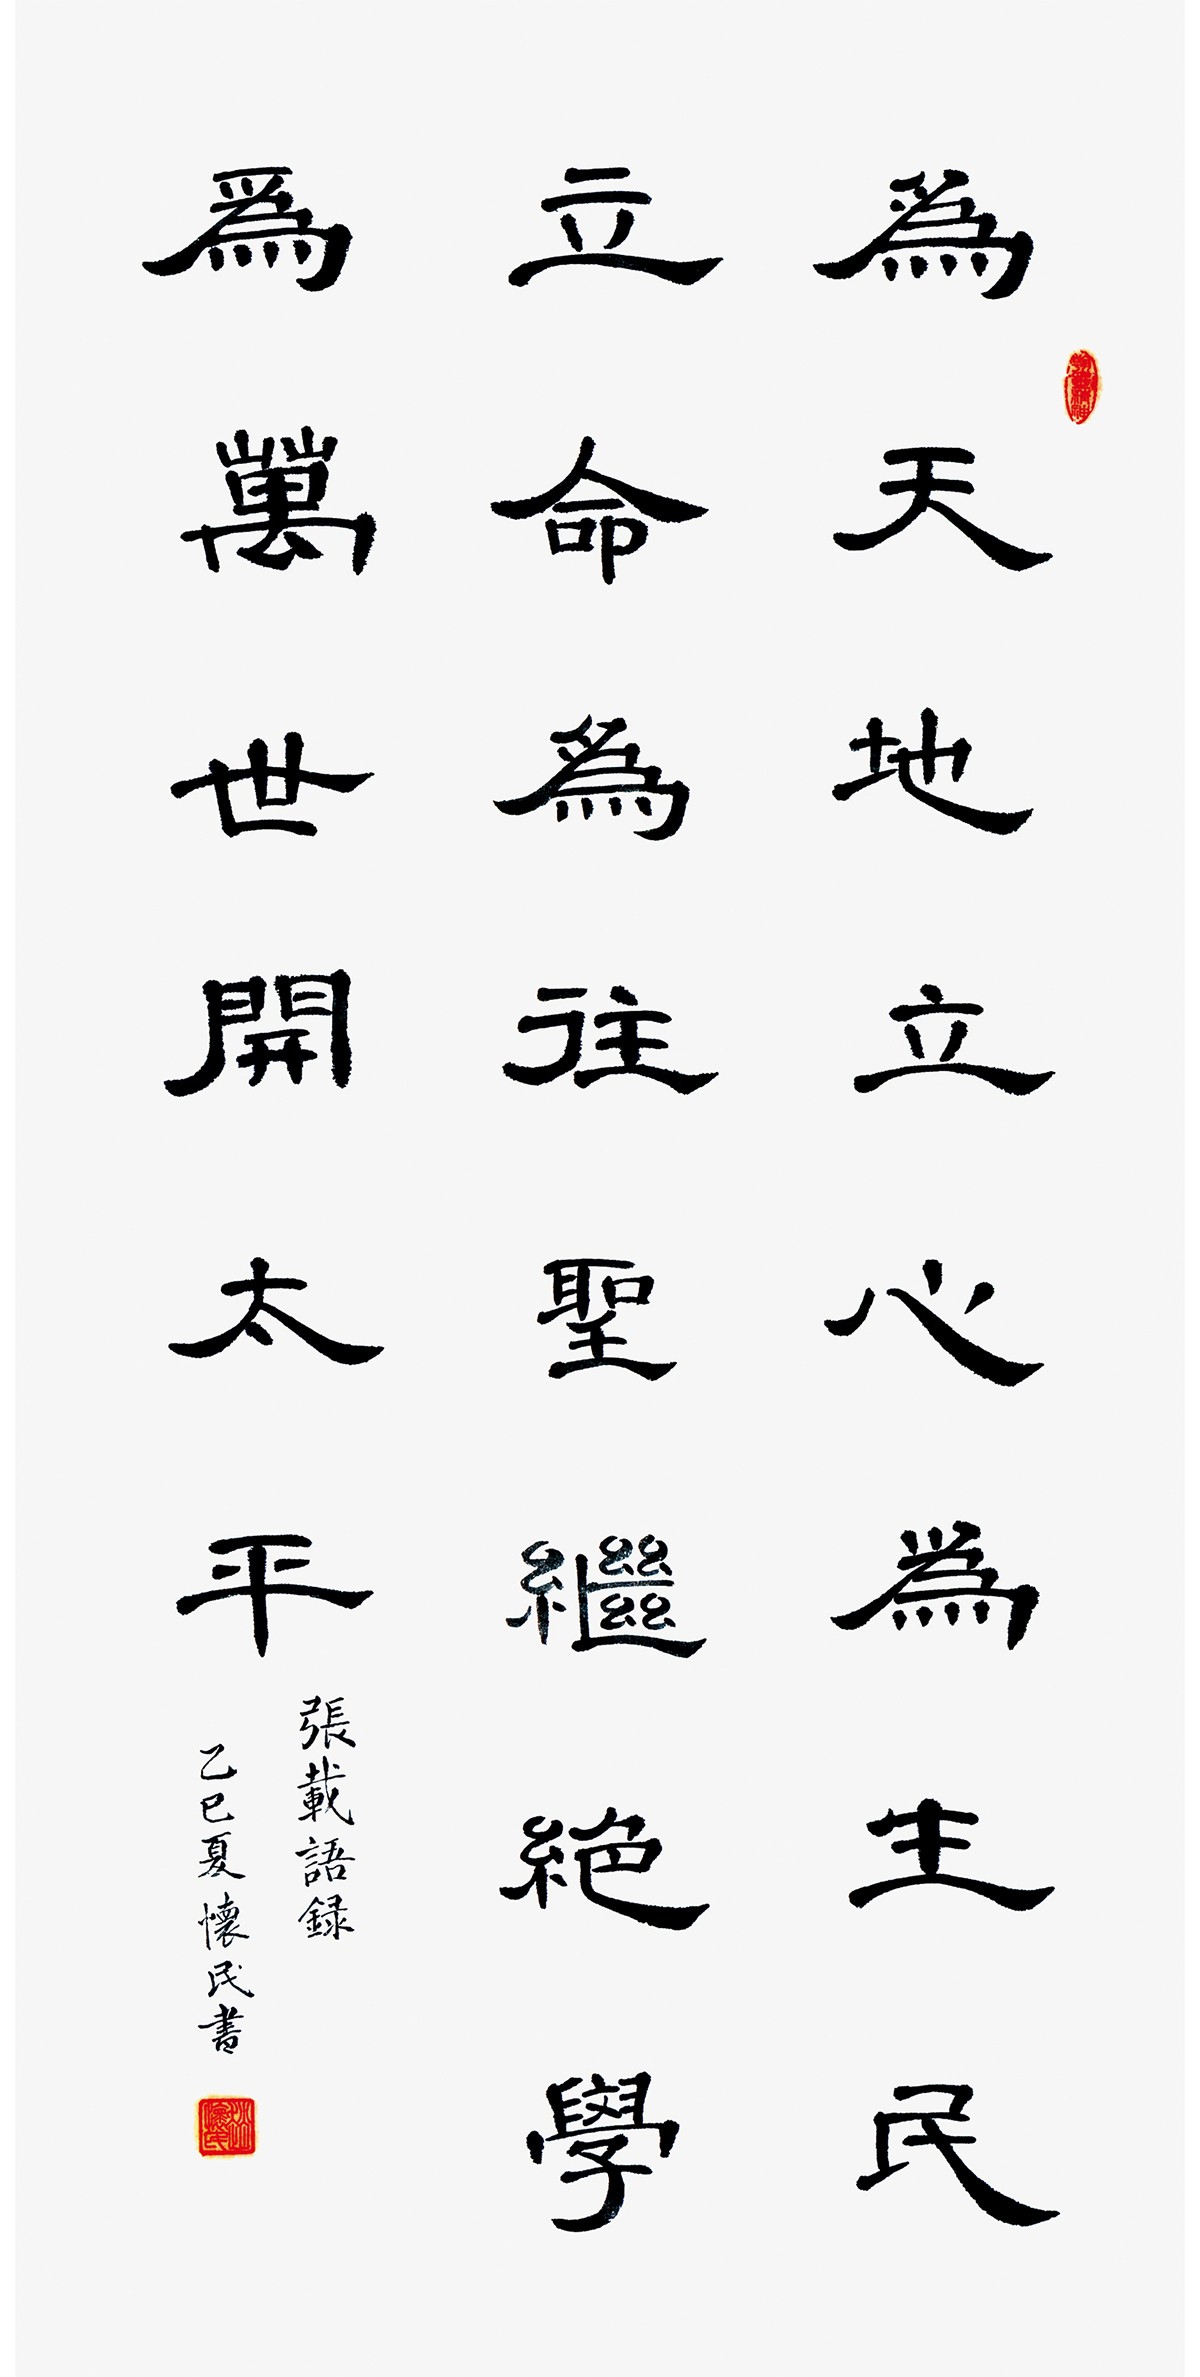 為天地立心為生民
立命為往聖繼絶學
爲萬世開太平
張載語録
乙巳夏懷民書